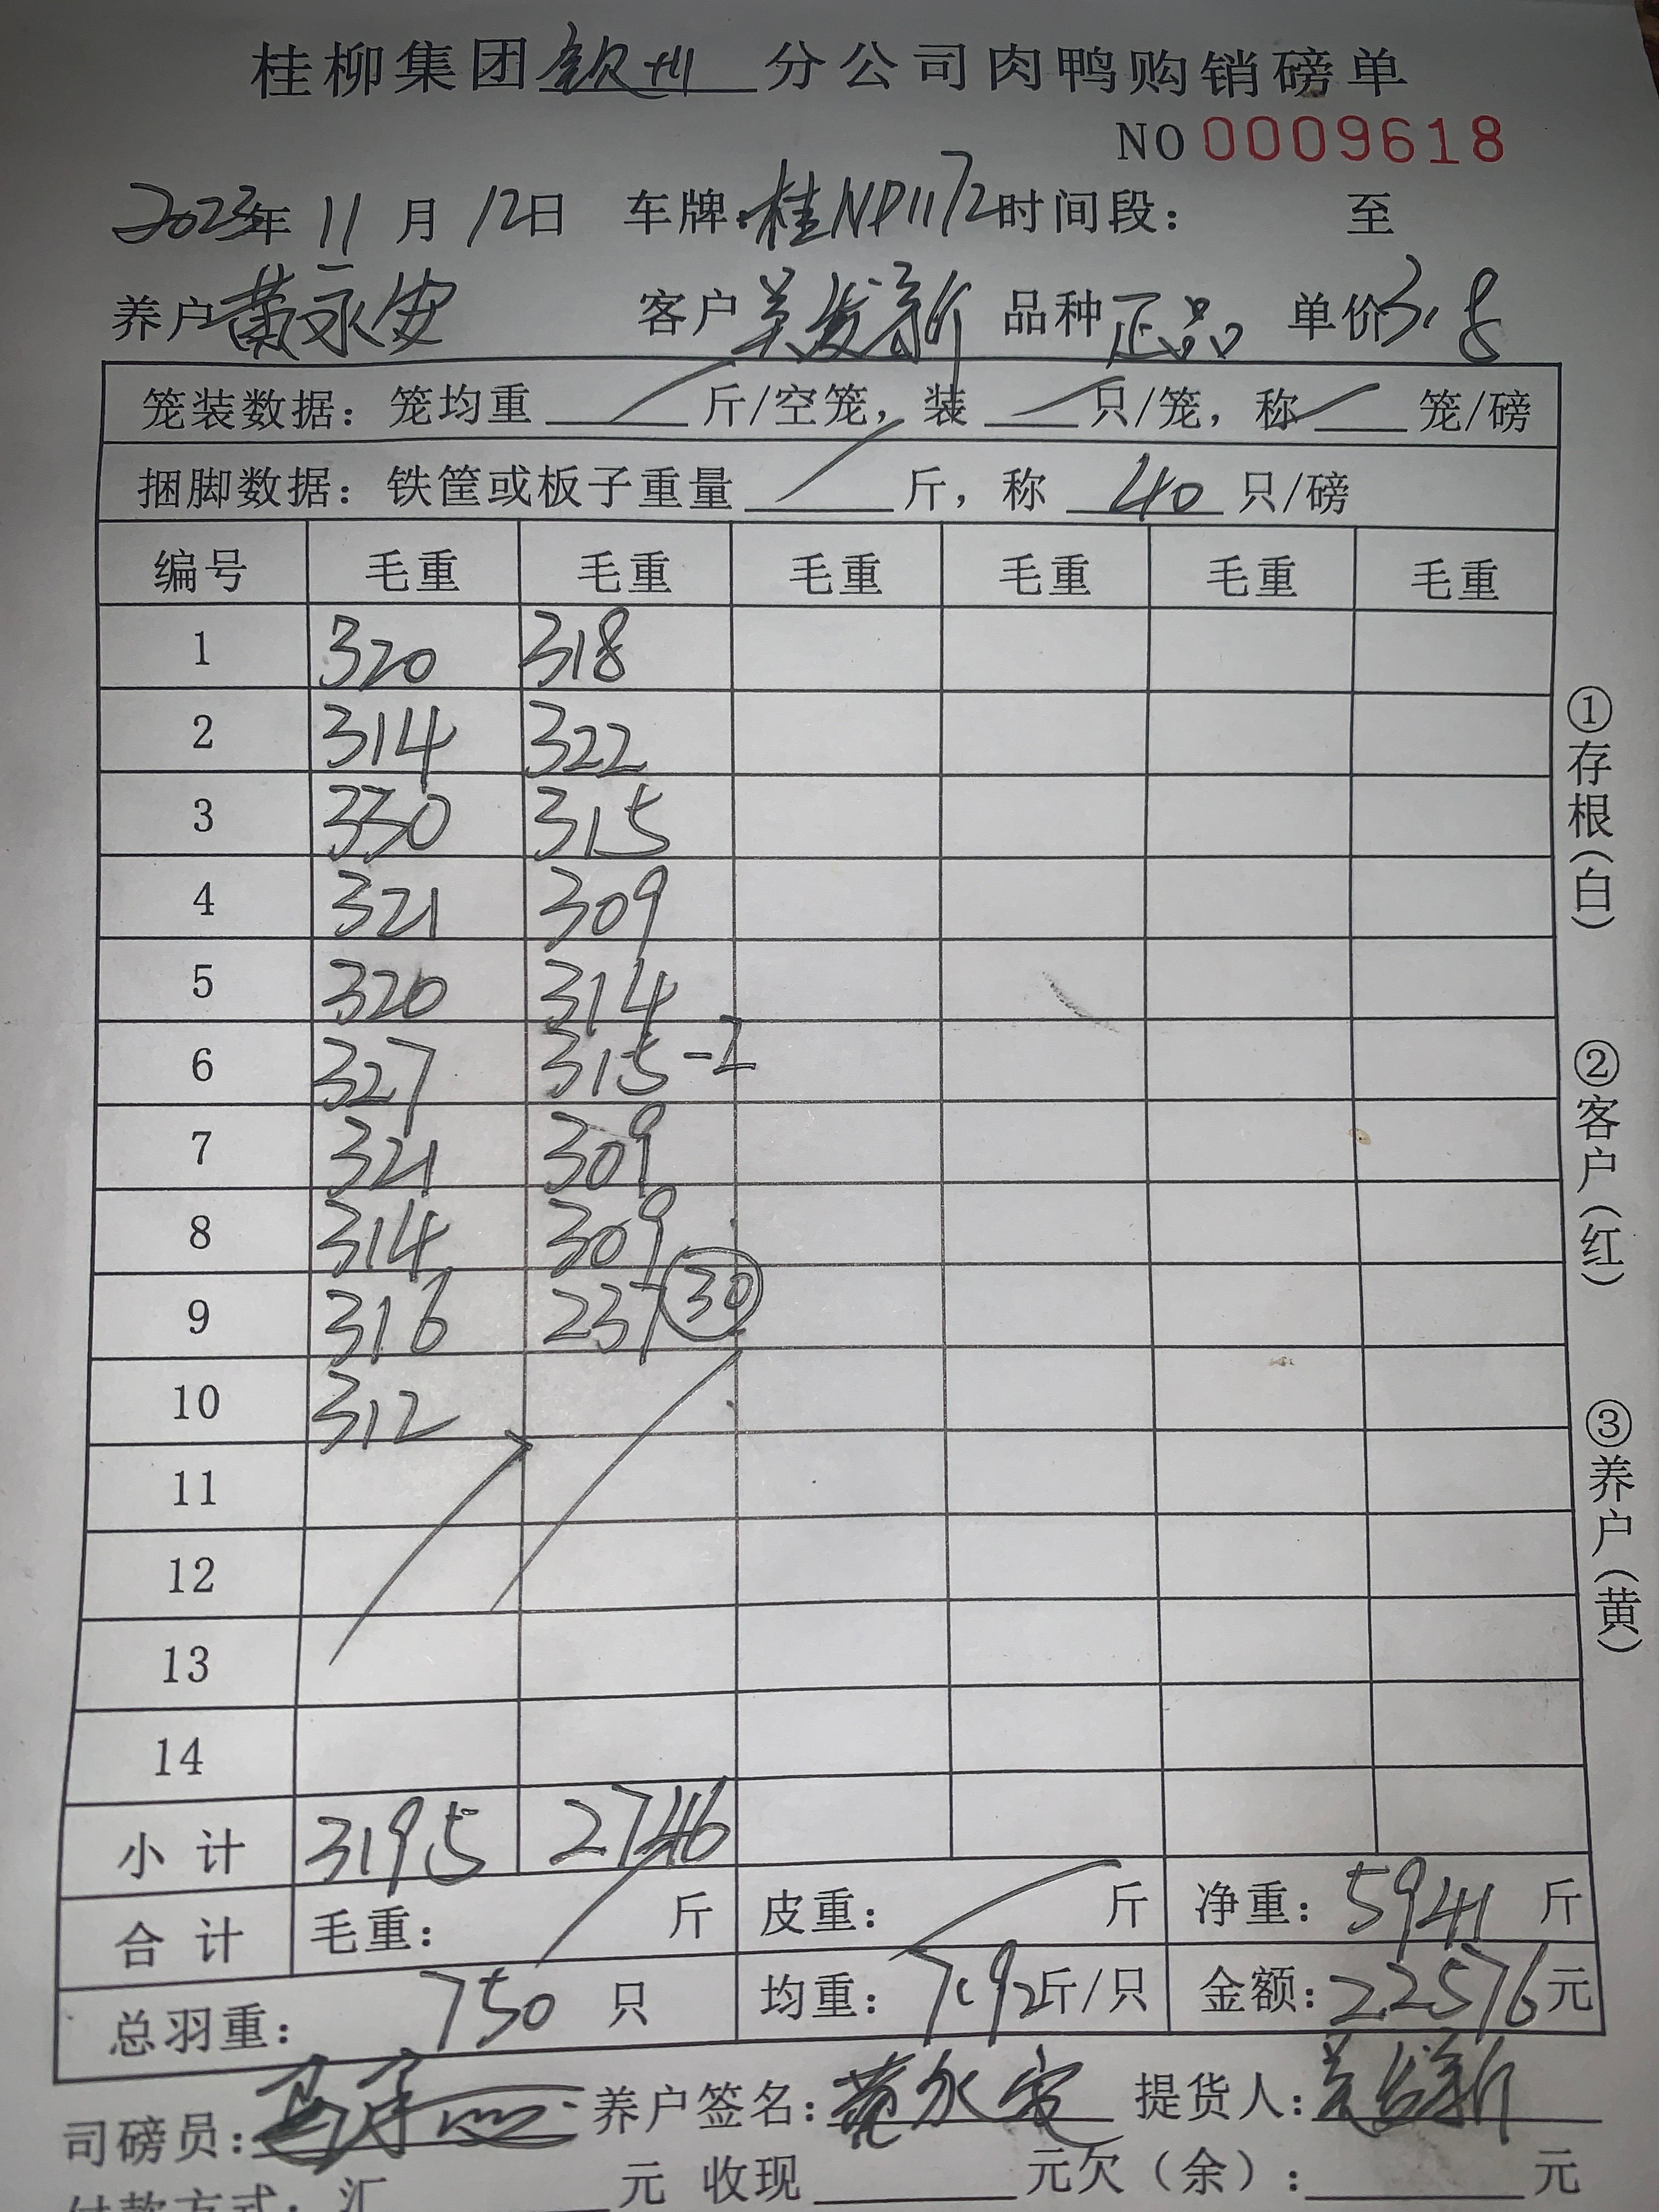 桂柳集团钦州分公司肉鸭购销磅单
NO 0009618
2023年11月12日 车牌:桂NP1172 时间段: 至
养户黄永安 客户关发新 品种正品 单价3.8
笼装数据: 笼均重 斤/空笼, 装 只/笼, 称 笼/磅
捆脚数据: 铁筐或板子重量 斤, 称 40 只/磅
编号 毛重 毛重 毛重 毛重 毛重 毛重
1 320 318
2 314 322
3 330 315
4 321 309
5 320 314
6 327 315-2
7 321 309
8 314 309
9 316 237 30
10 312
11
12
13
14
小计 3195 2746
合计 毛重: 斤 皮重: 斤 净重: 5941 斤
总羽重: 750 只 均重: 7.92斤/只 金额: 22576元
司磅员: 养户签名: 黄永安 提货人: 关发新
付款方式: 汇 元 收现 元欠(余): 元
①存根(白)
②客户(红)
③养户(黄)